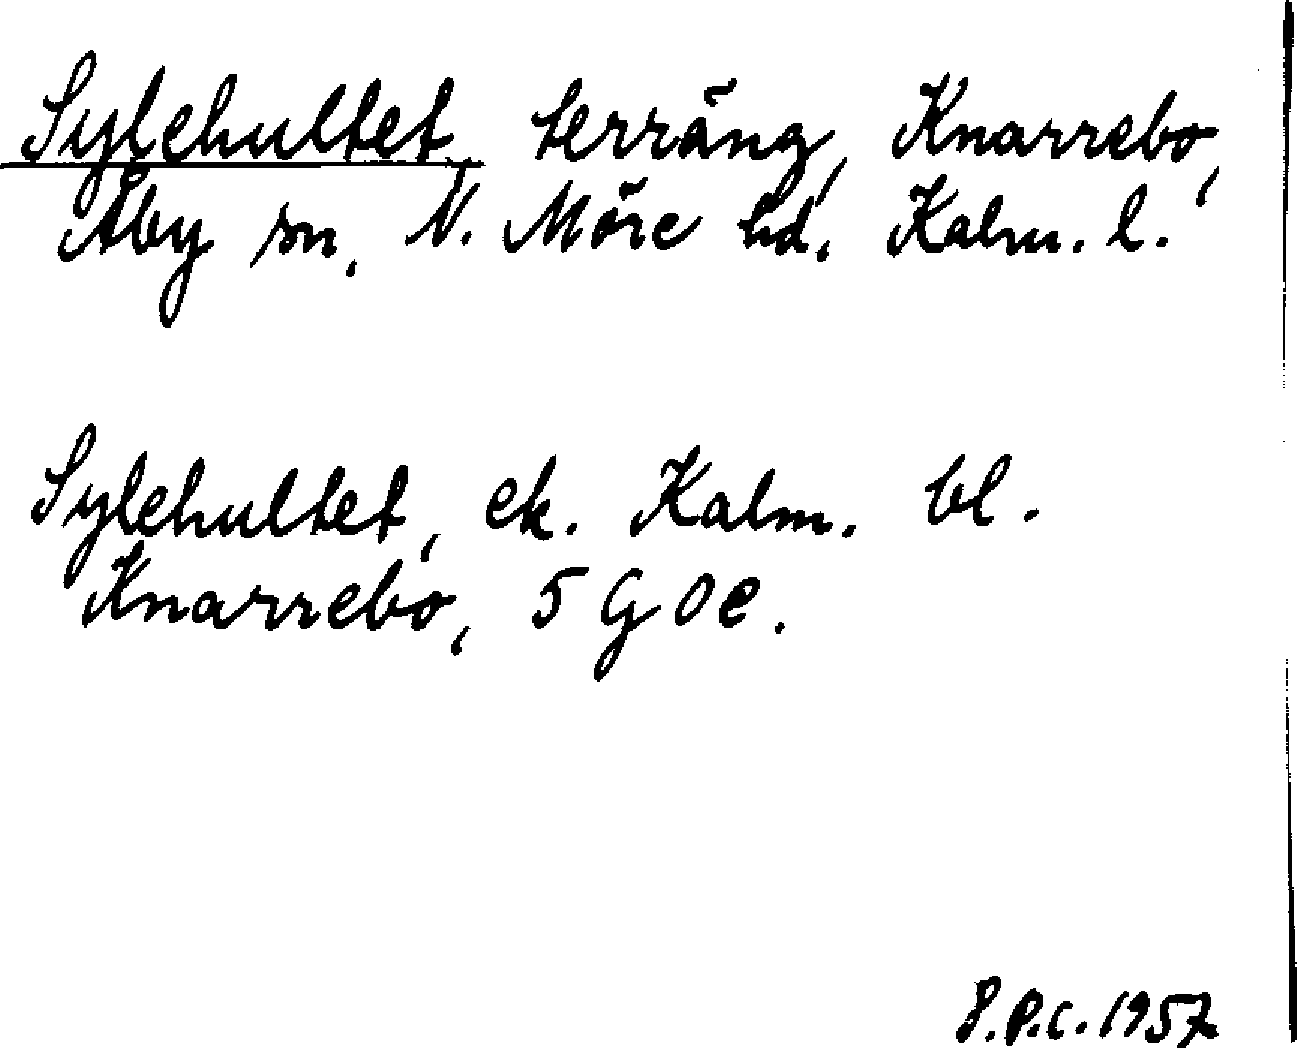 Sylehultet, terräng, Knarrebo,
Åby sn, N. Möre hd, Kalm. l.
Sylehultet, ek. Kalm. bl.
Knarrebo, 5 G 0 e.
P.C. 1957